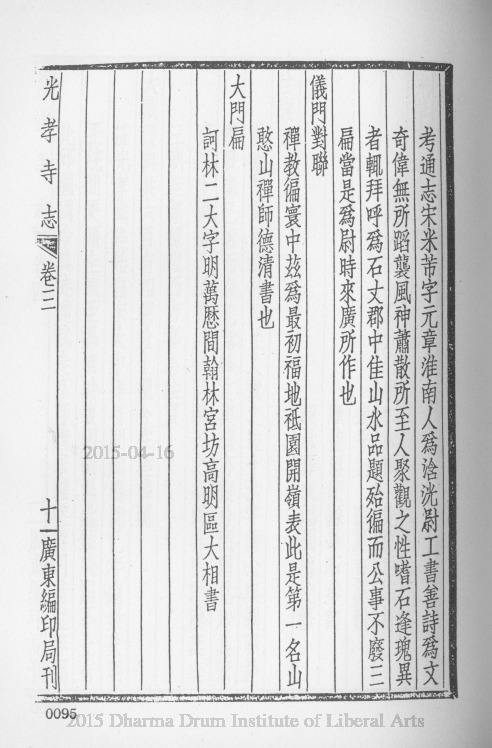 考通志宋米芾字元章淮南人爲浛洸尉工書善詩爲文
奇偉無所蹈襲風神蕭散所至人聚觀之性嗜石逢瑰異
者輒拜呼爲石丈郡中佳山水品題殆徧而公事不廢三
扁當是爲尉時來廣所作也
儀門對聯
禪教徧寰中兹爲最初福地祇園開嶺表此是第一名山
憨山禪師德清書也
大門扁
訶林二大字明萬厯間翰林宮坊高明區大相書
光孝寺志 卷三 十一 廣東編印局刊
2015-04-16
0095
2015 Dharma Drum Institute of Liberal Arts